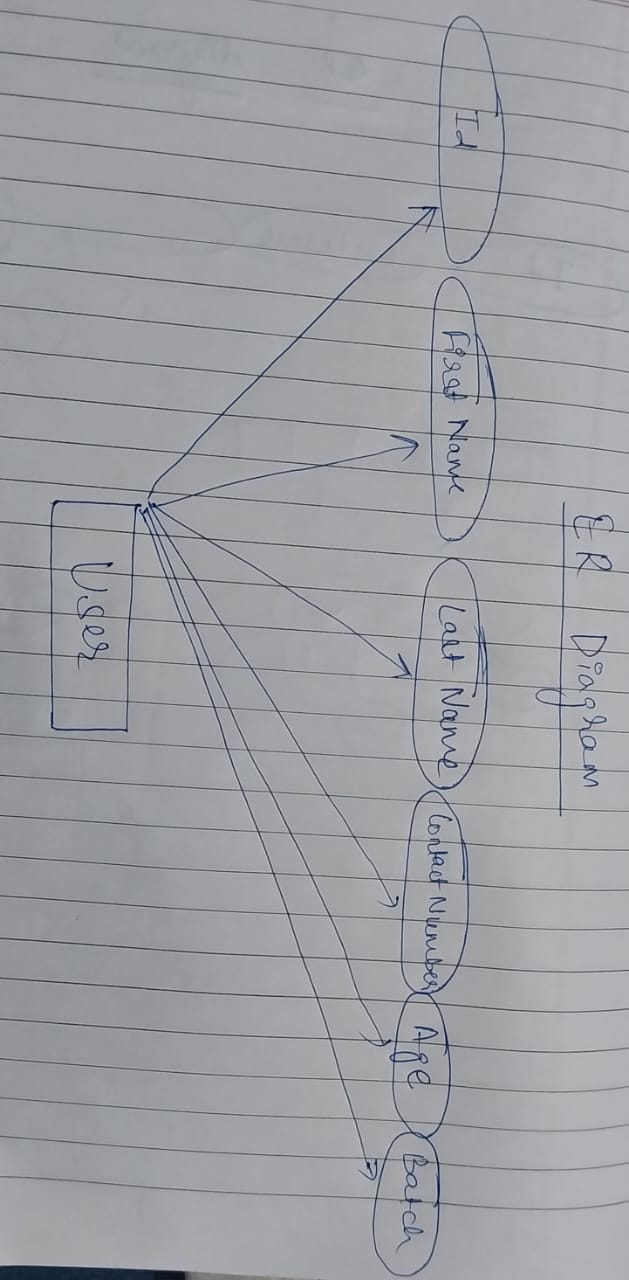 ER Diagram
Id
First Name
Last Name
Contact Number
Age
Batch
User